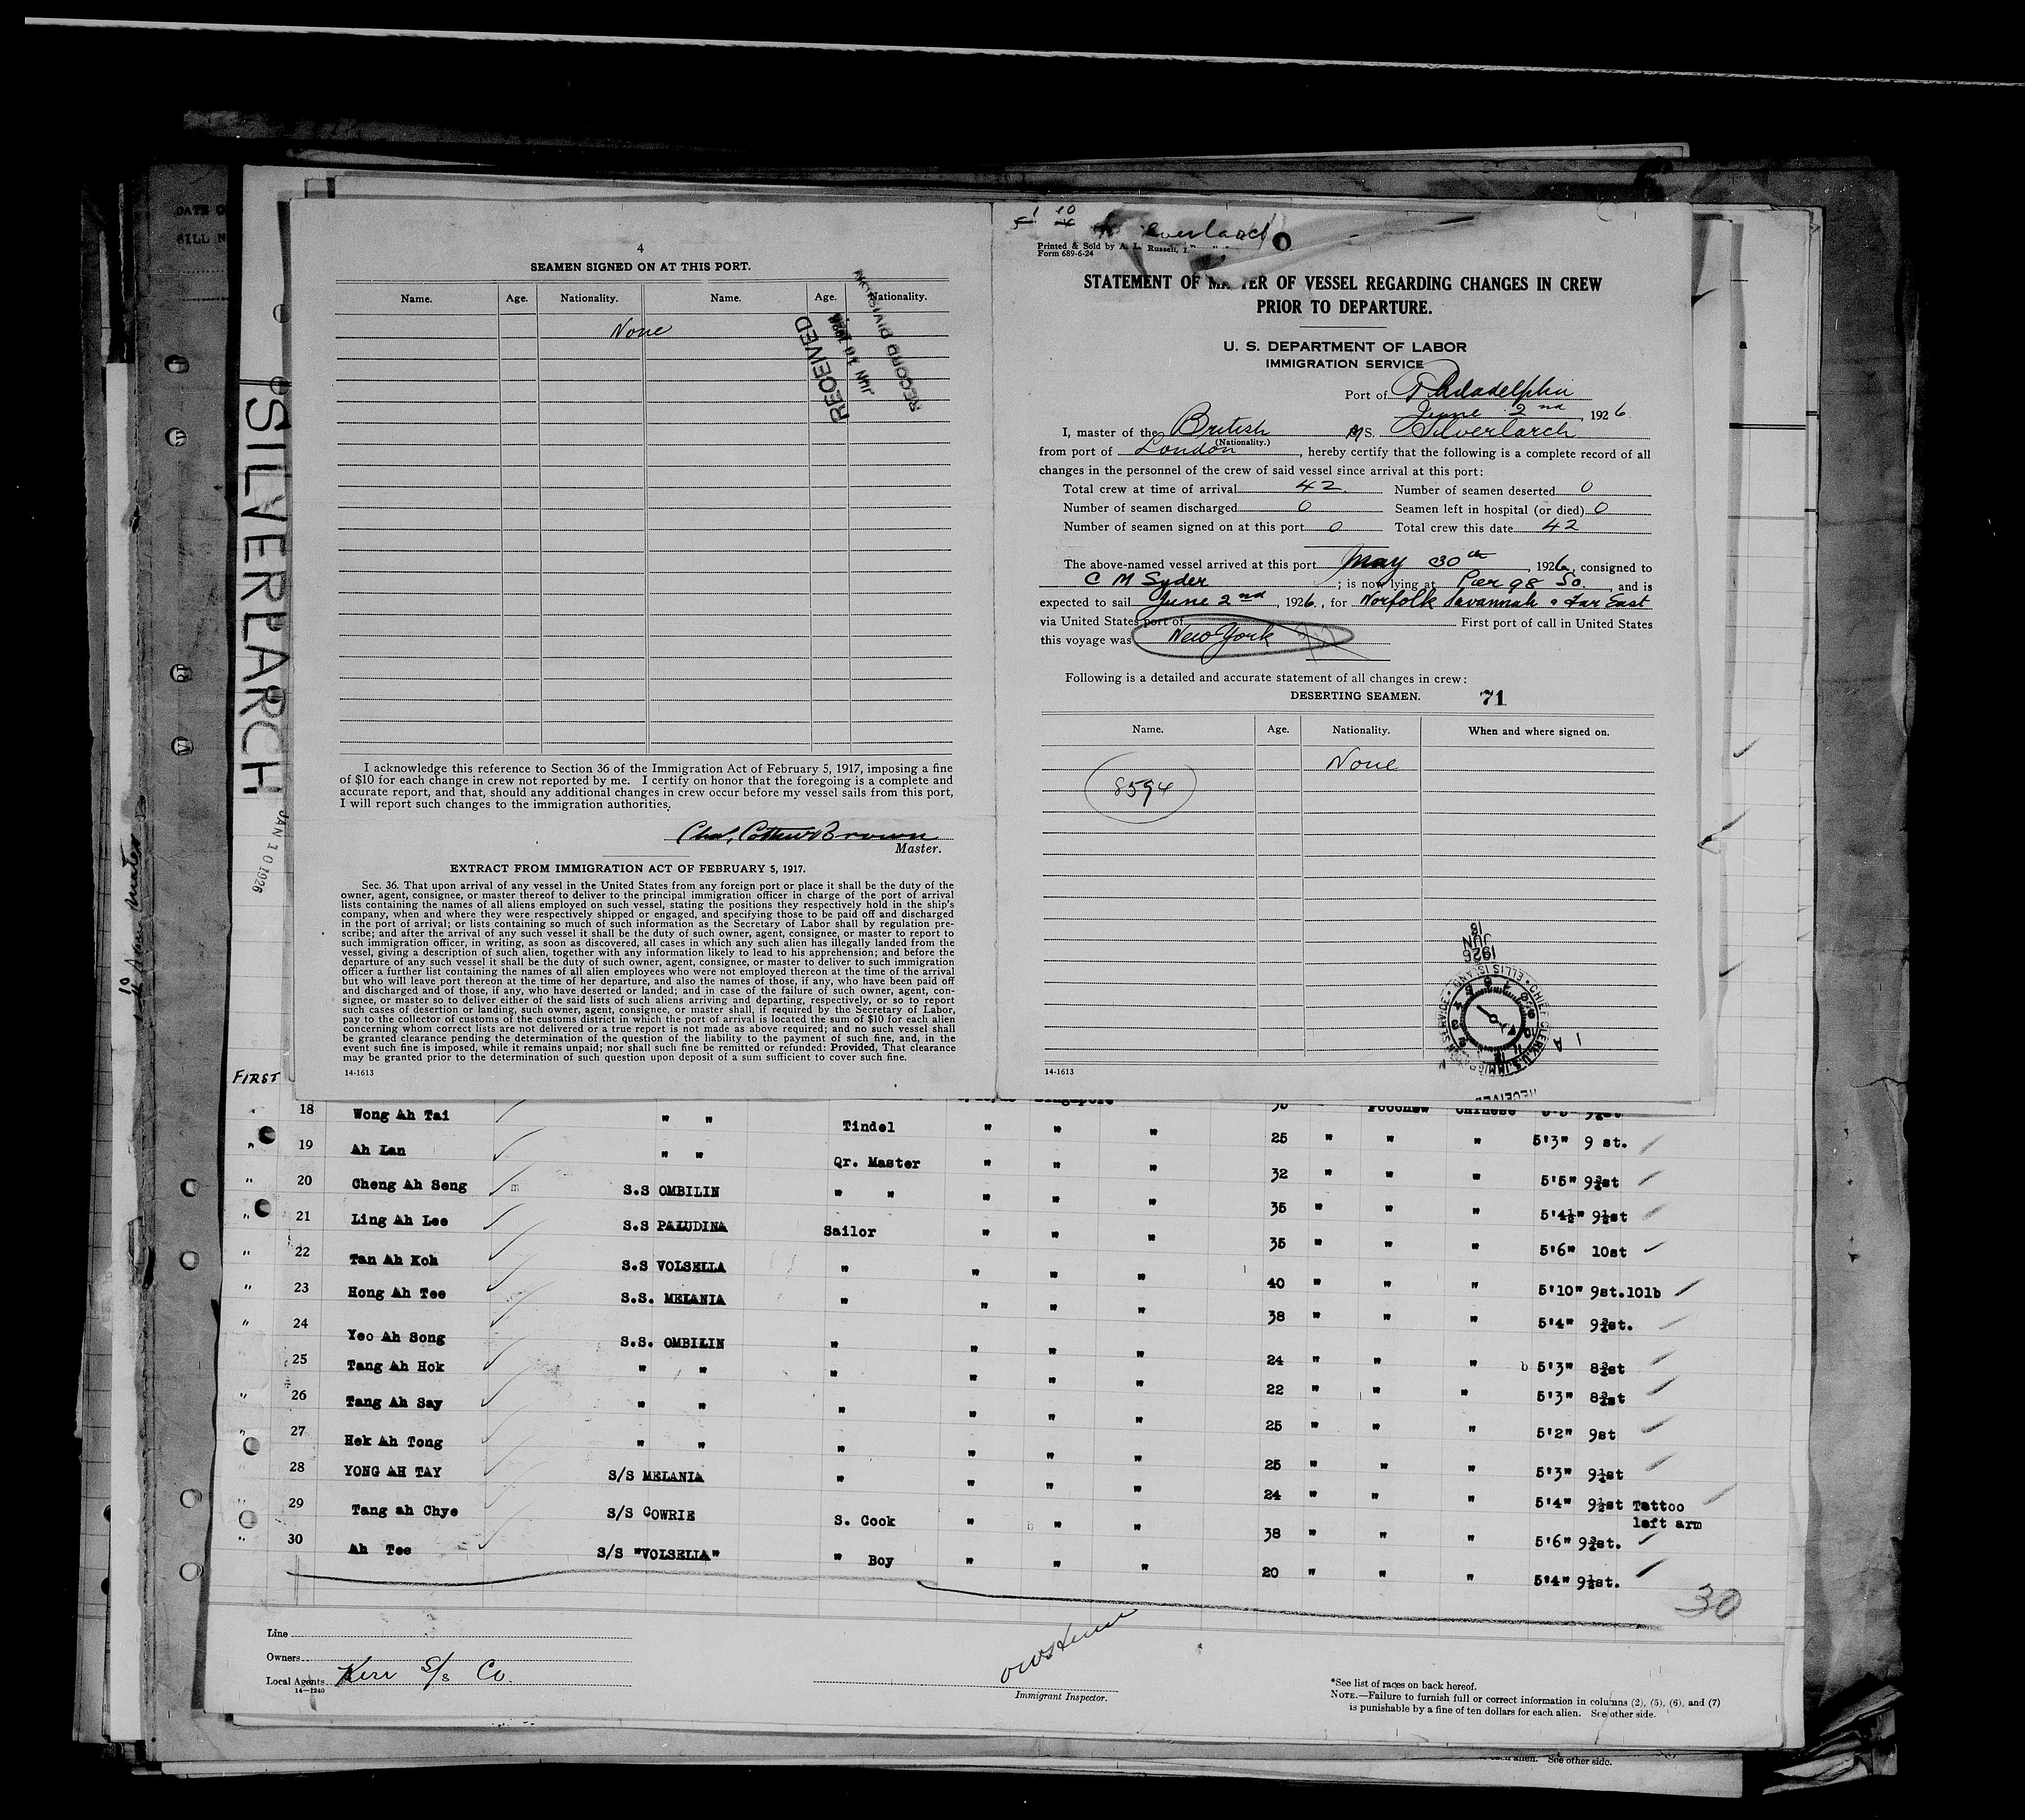 4
SEAMEN SIGNED ON AT THIS PORT.
Name. Age. Nationality. Name. Age. Nationality.
None
RECEIVED
JUN 10 1926
RECORD DIVISION
I acknowledge this reference to Section 36 of the Immigration Act of February 5, 1917, imposing a fine
of $10 for each change in crew not reported by me. I certify on honor that the foregoing is a complete and
accurate report, and that, should any additional changes in crew occur before my vessel sails from this port,
I will report such changes to the immigration authorities.
Brown
Master.
EXTRACT FROM IMMIGRATION ACT OF FEBRUARY 5, 1917.
Sec. 36. That upon arrival of any vessel in the United States from any foreign port or place it shall be the duty of the
owner, agent, consignee, or master thereof to deliver to the principal immigration officer in charge of the port of arrival
lists containing the names of all aliens employed on such vessel, stating the positions they respectively hold in the ship's
company, when and where they were respectively shipped or engaged, and specifying those to be paid off and discharged
in the port of arrival; or lists containing so much of such information as the Secretary of Labor shall by regulation pre-
scribe; and after the arrival of any such vessel it shall be the duty of such owner, agent, consignee, or master to report to
such immigration officer, in writing, as soon as discovered, all cases in which any such alien has illegally landed from the
vessel, giving a description of such alien, together with any information likely to lead to his apprehension; and before the
departure of any such vessel it shall be the duty of such owner, agent, consignee, or master to deliver to such immigration
officer a further list containing the names of all alien employees who were not employed thereon at the time of the arrival
but who will leave port thereon at the time of her departure, and also the names of those, if any, who have been paid off
and discharged and of those, if any, who have deserted or landed; and in case of the failure of such owner, agent, con-
signee, or master so to deliver either of the said lists of such aliens arriving and departing, respectively, or so to report
such cases of desertion or landing, such owner, agent, consignee, or master shall, if required by the Secretary of Labor,
pay to the collector of customs of the customs district in which the port of arrival is located the sum of $10 for each alien
concerning whom correct lists are not delivered or a true report is not made as above required; and no such vessel shall
be granted clearance pending the determination of the question of the liability to the payment of such fine, and, in the
event such fine is imposed, while it remains unpaid; nor shall such fine be remitted or refunded: Provided, That clearance
may be granted prior to the determination of such question upon deposit of a sum sufficient to cover such fine.
14-1613
Printed & Sold by A. L. Russell,
Form 689-6-24
STATEMENT OF MASTER OF VESSEL REGARDING CHANGES IN CREW
PRIOR TO DEPARTURE.
U. S. DEPARTMENT OF LABOR
IMMIGRATION SERVICE
Port of Philadelphia
June 2nd, 1926.
I, master of the British MS. Silverlarch
(Nationality.)
from port of London, hereby certify that the following is a complete record of all
changes in the personnel of the crew of said vessel since arrival at this port:
Total crew at time of arrival 42. Number of seamen deserted 0
Number of seamen discharged 0 Seamen left in hospital (or died) 0
Number of seamen signed on at this port 0 Total crew this date 42
The above-named vessel arrived at this port May 30th, 1926, consigned to
C M Syder; is now lying at Pier 98 So., and is
expected to sail June 2nd, 1926., for Norfolk Savannah & Far East
via United States port of First port of call in United States
this voyage was New York
Following is a detailed and accurate statement of all changes in crew:
DESERTING SEAMEN. 71
Name. Age. Nationality. When and where signed on.
None
8594
1926
JUN
18
CHIEF CLERK, U.S. IMMIGRATION SERVICE · ELLIS ISLAND
RECEIVED
14-1613
SILVERLARCH
JAN 10 1926
FIRST
18 Wong Ah Tai " " Tindel " " " 25 " " " 5'3" 9 st.
19 Ah Lan " " Qr. Master " " " 32 " " " 5'5" 9¾st
20 Cheng Ah Seng S.S OMBILIN " " " " " 35 " " " 5'4½" 9½st
21 Ling Ah Lee S.S PALUDINA Sailor " " " 35 " " " 5'6" 10st
22 Tan Ah Koh S.S VOLSELLA " " " " 40 " " " 5'10" 9st.10lb
23 Hong Ah Tee S.S. MELANIA " " " " 38 " " " 5'4" 9¾st.
24 Yeo Ah Song S.S. OMBILIN " " " " 24 " " " 5'3" 8¾st
25 Tang Ah Hok " " " " " " 22 " " " 5'3" 8¾st
26 Tang Ah Say " " " " " " 25 " " " 5'2" 9st
27 Hek Ah Tong " " " " " " 25 " " " 5'3" 9½st
28 YONG AH TAY S/S MELANIA " " " " 24 " " " 5'4" 9½st Tattoo
left arm
29 Tang ah Chye S/S COWRIE S. Cook " " " 38 " " " 5'6" 9¾st.
30 Ah Tee S/S "VOLSELLA" " Boy " " " 20 " " " 5'4" 9½st.
30
Line
Owners
Local Agents Kerr S/s Co.
14-1240
Immigrant Inspector.
*See list of races on back hereof.
NOTE.—Failure to furnish full or correct information in columns (2), (5), (6), and (7)
is punishable by a fine of ten dollars for each alien. See other side.
See other side.